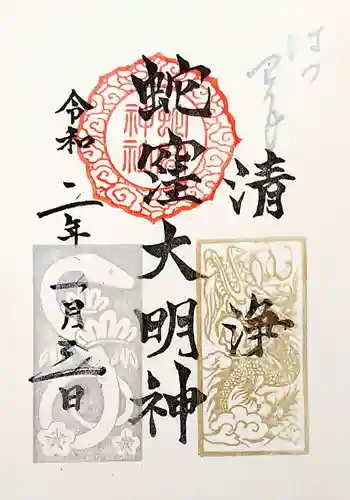 はつ
清浄
蛇窪大明神
令和二年
一月三日
蛇窪神社